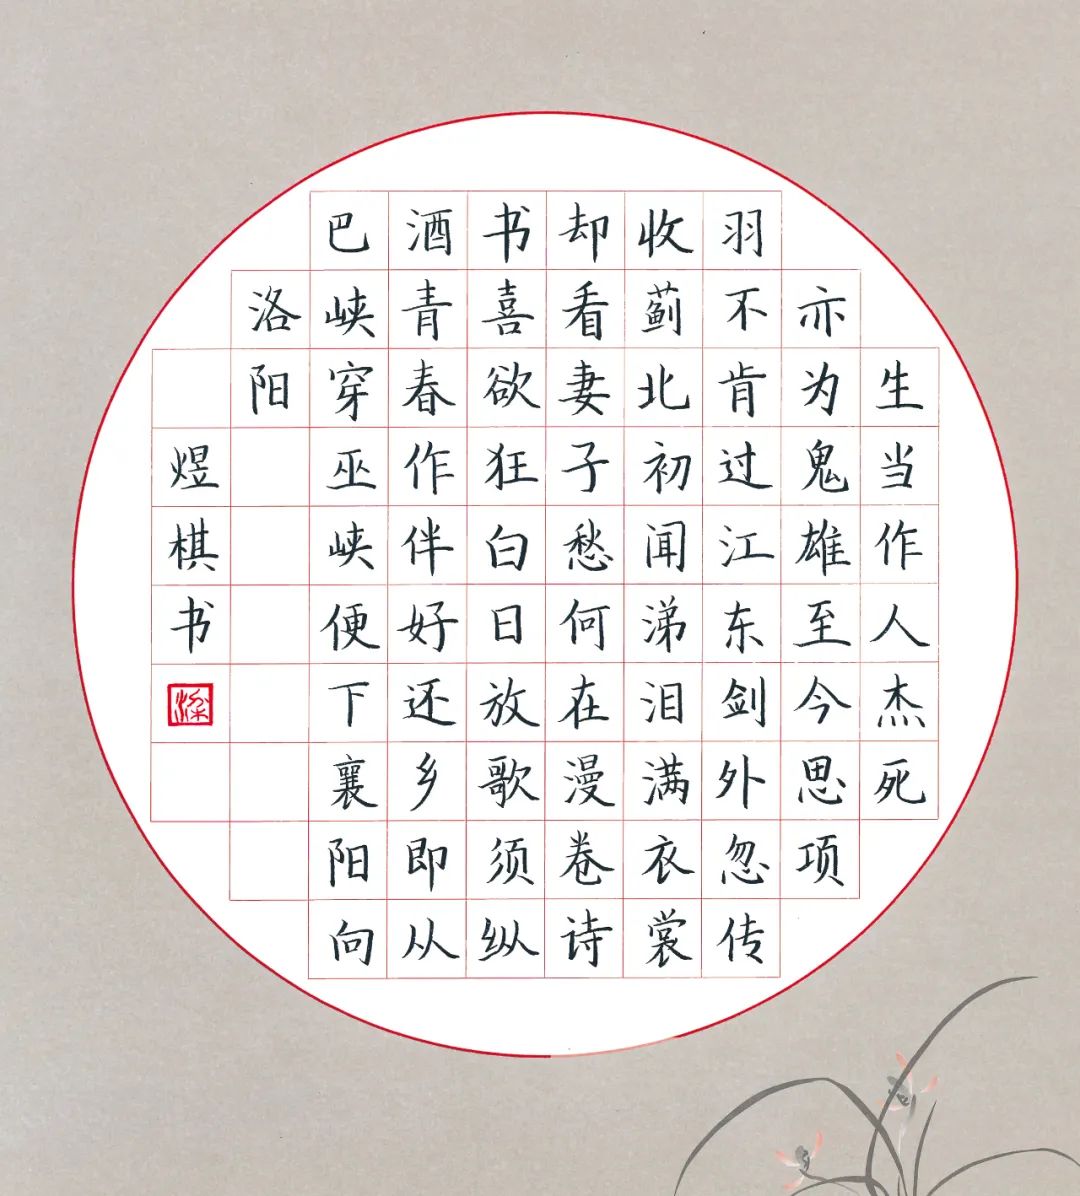 生当作人杰死
亦为鬼雄至今思项
羽不肯过江东剑外忽传
收蓟北初闻涕泪满衣裳
却看妻子愁何在漫卷诗
书喜欲狂白日放歌须纵
酒青春作伴好还乡即从
巴峡穿巫峡便下襄阳向
洛阳
煜棋书
梁